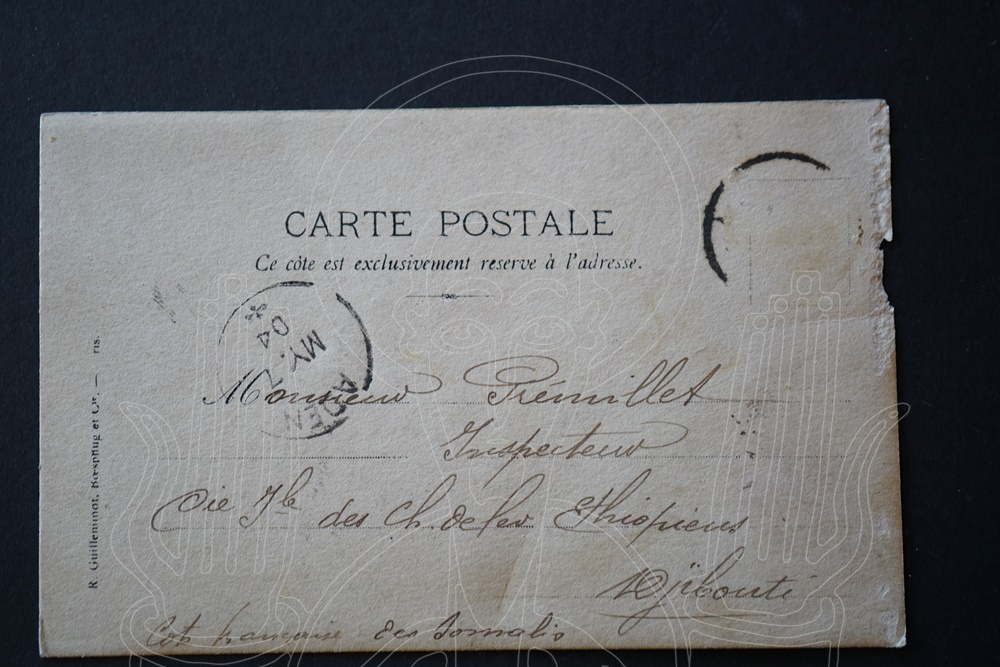 CARTE POSTALE
Ce côte est exclusivement reserve à l'adresse.
ADEN
MY. 7
04
Monsieur Prémillet
Inspecteur
Cie Ile des Ch. de fer Ethiopiens
Djibouti
Côte française des Somalis
R. Guilleminot, Bœspflug et Cie. — ris.